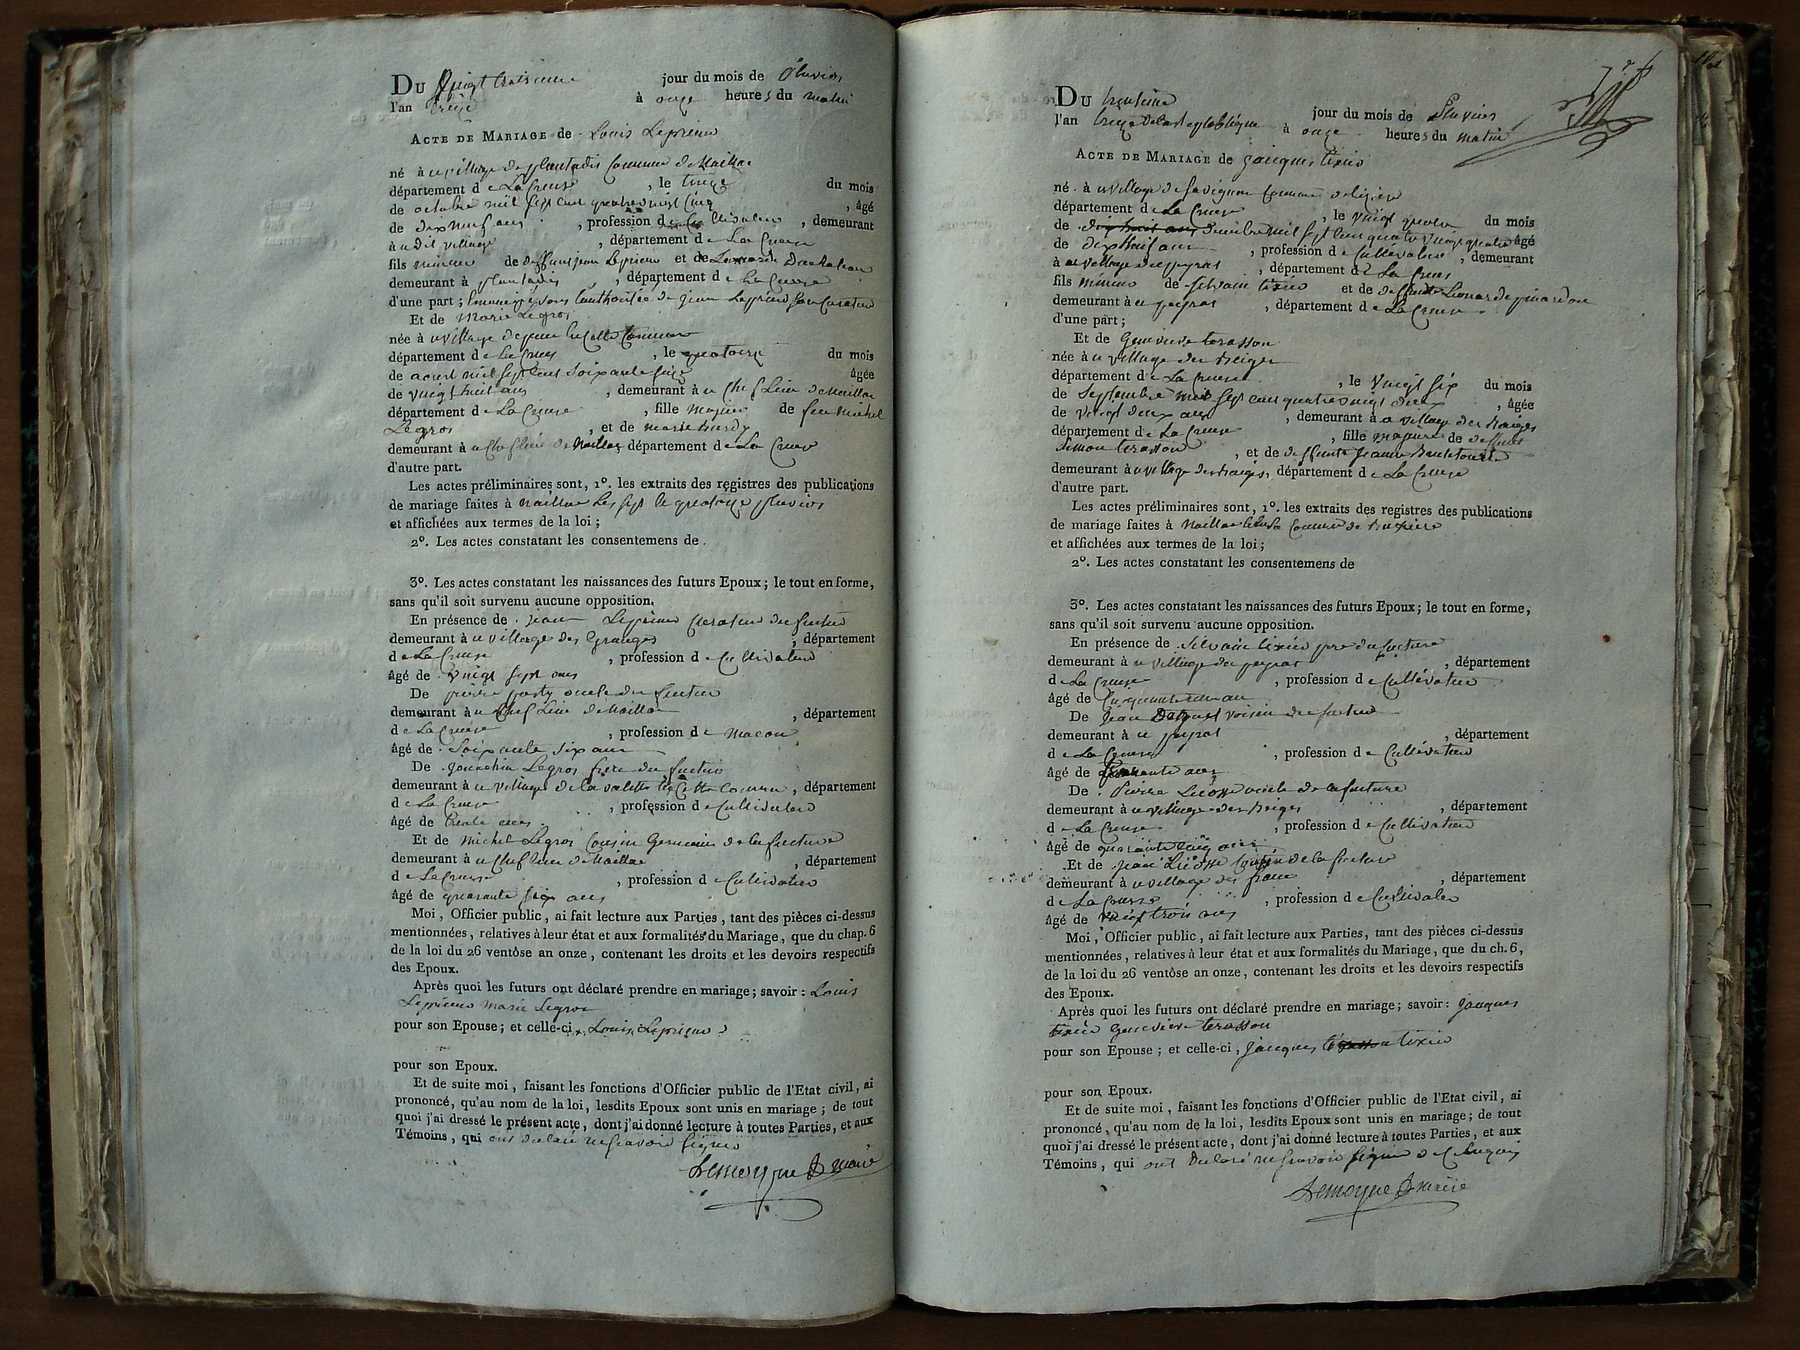 Du vingt troisieme jour du mois de Pluvios
l'an treize à onze heures du matin
Acte de Mariage de Louis Leprieur
né à u village de plantadis Commune de Naillac
département de La Creuse, le treize du mois
de octobre mil sept cent quatre vingt cinq, âgé
de dix neuf ans, profession de Cultivateur, demeurant
à u dit village, département de La Creuse
fils mineur de deffunt jean Leprieur et de Leonarde
demeurant à plantadis, département de La Creuse
d'une part; sous l'authorisée de jean Leprieur son Curateur
Et de Marie Legros
née à u village de Commune
département de La Creuse, le quatorze du mois
de avril mil sept cent soixante seize âgée
de vingt huit ans, demeurant à u Chef Lieu de Naillac
département de La Creuse, fille majeure de feu Michel
Legros, et de marie
demeurant à u Chef Lieu de Naillac département de La Creuse
d'autre part.
Les actes préliminaires sont, 1°. les extraits des registres des publications
de mariage faites à Naillac Les sept le quatorze pluvios
et affichées aux termes de la loi;
2°. Les actes constatant les consentemens de
3°. Les actes constatant les naissances des futurs Epoux; le tout en forme,
sans qu'il soit survenu aucune opposition.
En présence de jean Leprieur Curateur du futur
demeurant à u village des Granges, département
de La Creuse, profession de Cultivateur
âgé de vingt sept ans
De pierre oncle du futur
demeurant à u Chef Lieu de Naillac, département
de La Creuse, profession de Macon
âgé de Soixante six ans
De Joachim Legros frere du futur
demeurant à u village de la valette de Cette Commune, département
de La Creuse, profession de Cultivateur
âgé de trente ans
Et de Michel Legros Cousin Germain de la future
demeurant à u Chef Lieu de Naillac, département
de La Creuse, profession de Cultivateur
âgé de quarante six ans
Moi, Officier public, ai fait lecture aux Parties, tant des pièces ci-dessus
mentionnées, relatives à leur état et aux formalités du Mariage, que du chap. 6
de la loi du 26 ventôse an onze, contenant les droits et les devoirs respectifs
des Epoux.
Après quoi les futurs ont déclaré prendre en mariage; savoir: Louis
Leprieur marie Legros
pour son Epouse; et celle-ci, Louis Leprieur
pour son Epoux.
Et de suite moi, faisant les fonctions d'Officier public de l'Etat civil, ai
prononcé, qu'au nom de la loi, lesdits Epoux sont unis en mariage; de tout
quoi j'ai dressé le présent acte, dont j'ai donné lecture à toutes Parties, et aux
Témoins, qui ont declaré ne scavoir signer
Lemoyne maire
Du trentieme jour du mois de Pluvios
l'an treize de la republique à onze heures du matin
Acte de Mariage de jacques tixier
né à u village de Savignac Commune de
département de La Creuse, le vingt du mois
de dix huit ans mil sept cent quatre vingt quatre âgé
de dix huit ans, profession de Cultivateur, demeurant
à u village du peyrat, département de La Creuse
fils mineur de silvain tixier et de deffunte Leonarde
demeurant à u peyrat, département de La Creuse
d'une part;
Et de Genevieve terasson
née à u village des
département de La Creuse, le vingt six du mois
de Septembre mil sept cent quatre vingt deux, âgée
de vingt deux ans, demeurant à u village des
département de La Creuse, fille majeure de deffunt
simon terasson, et de deffunte jeanne
demeurant à u village des, département de La Creuse
d'autre part.
Les actes préliminaires sont, 1°. les extraits des registres des publications
de mariage faites à Naillac Commune de
et affichées aux termes de la loi;
2°. Les actes constatant les consentemens de
3°. Les actes constatant les naissances des futurs Epoux; le tout en forme,
sans qu'il soit survenu aucune opposition.
En présence de silvain tixier pere du future
demeurant à u village du peyrat, département
de La Creuse, profession de Cultivateur
âgé de Cinquante
De jean voisin du futur
demeurant à u peyrat, département
de La Creuse, profession de Cultivateur
âgé de quarante ans
De Pierre oncle de la future
demeurant à u village des, département
de La Creuse, profession de Cultivateur
âgé de quarante cinq ans
Et de jean Cousin de la future
demeurant à u village, département
de La Creuse, profession de Cultivateur
âgé de vingt trois ans
Moi, Officier public, ai fait lecture aux Parties, tant des pièces ci-dessus
mentionnées, relatives à leur état et aux formalités du Mariage, que du ch. 6,
de la loi du 26 ventôse an onze, contenant les droits et les devoirs respectifs
des Epoux.
Après quoi les futurs ont déclaré prendre en mariage; savoir: jacques
tixier Genevieve terasson
pour son Epouse; et celle-ci, jacques terasson tixier
pour son Epoux.
Et de suite moi, faisant les fonctions d'Officier public de l'Etat civil, ai
prononcé, qu'au nom de la loi, lesdits Epoux sont unis en mariage; de tout
quoi j'ai dressé le présent acte, dont j'ai donné lecture à toutes Parties, et aux
Témoins, qui ont declaré ne scavoir signer de Ce Enquis
Lemoyne maire